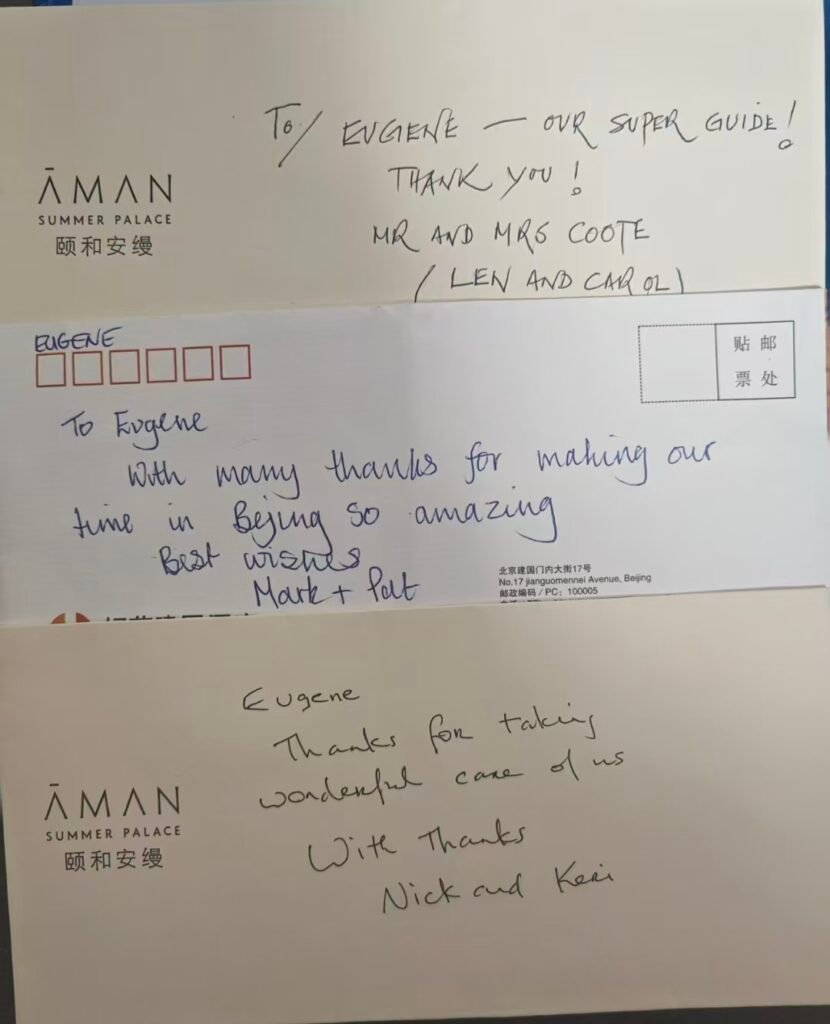 To/ EUGENE — OUR SUPER GUIDE!
THANK YOU!
MR AND MRS COOTE
(LEN AND CAROL)
ĀMAN
SUMMER PALACE
颐和安缦
EUGENE
贴 邮
票 处
To Eugene
With many thanks for making our
time in Beijing so amazing
Best wishes
Mark + Pat
北京建国门内大街17号
No.17 jianguomennei Avenue, Beijing
邮政编码 / PC: 100005
Eugene
Thanks for taking
wonderful care of us
With Thanks
Nick and Keri
ĀMAN
SUMMER PALACE
颐和安缦